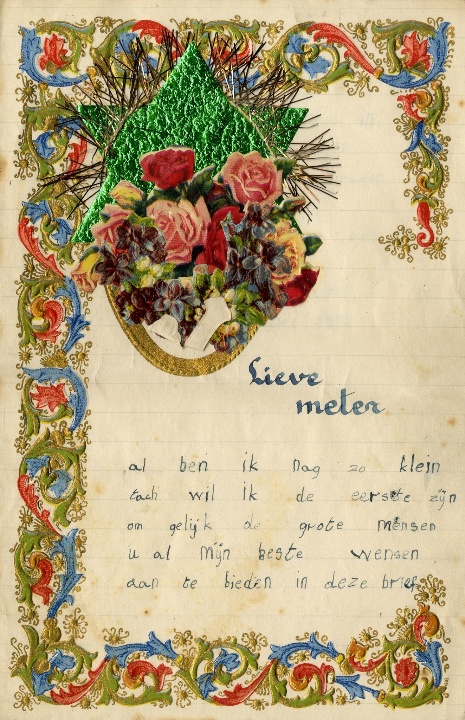 Lieve
meter
al ben ik nag zo klein
tach wil ik de eerste zijn
om gelijk de grote mensen
u al mijn beste wensen
aan te bieden in deze brief